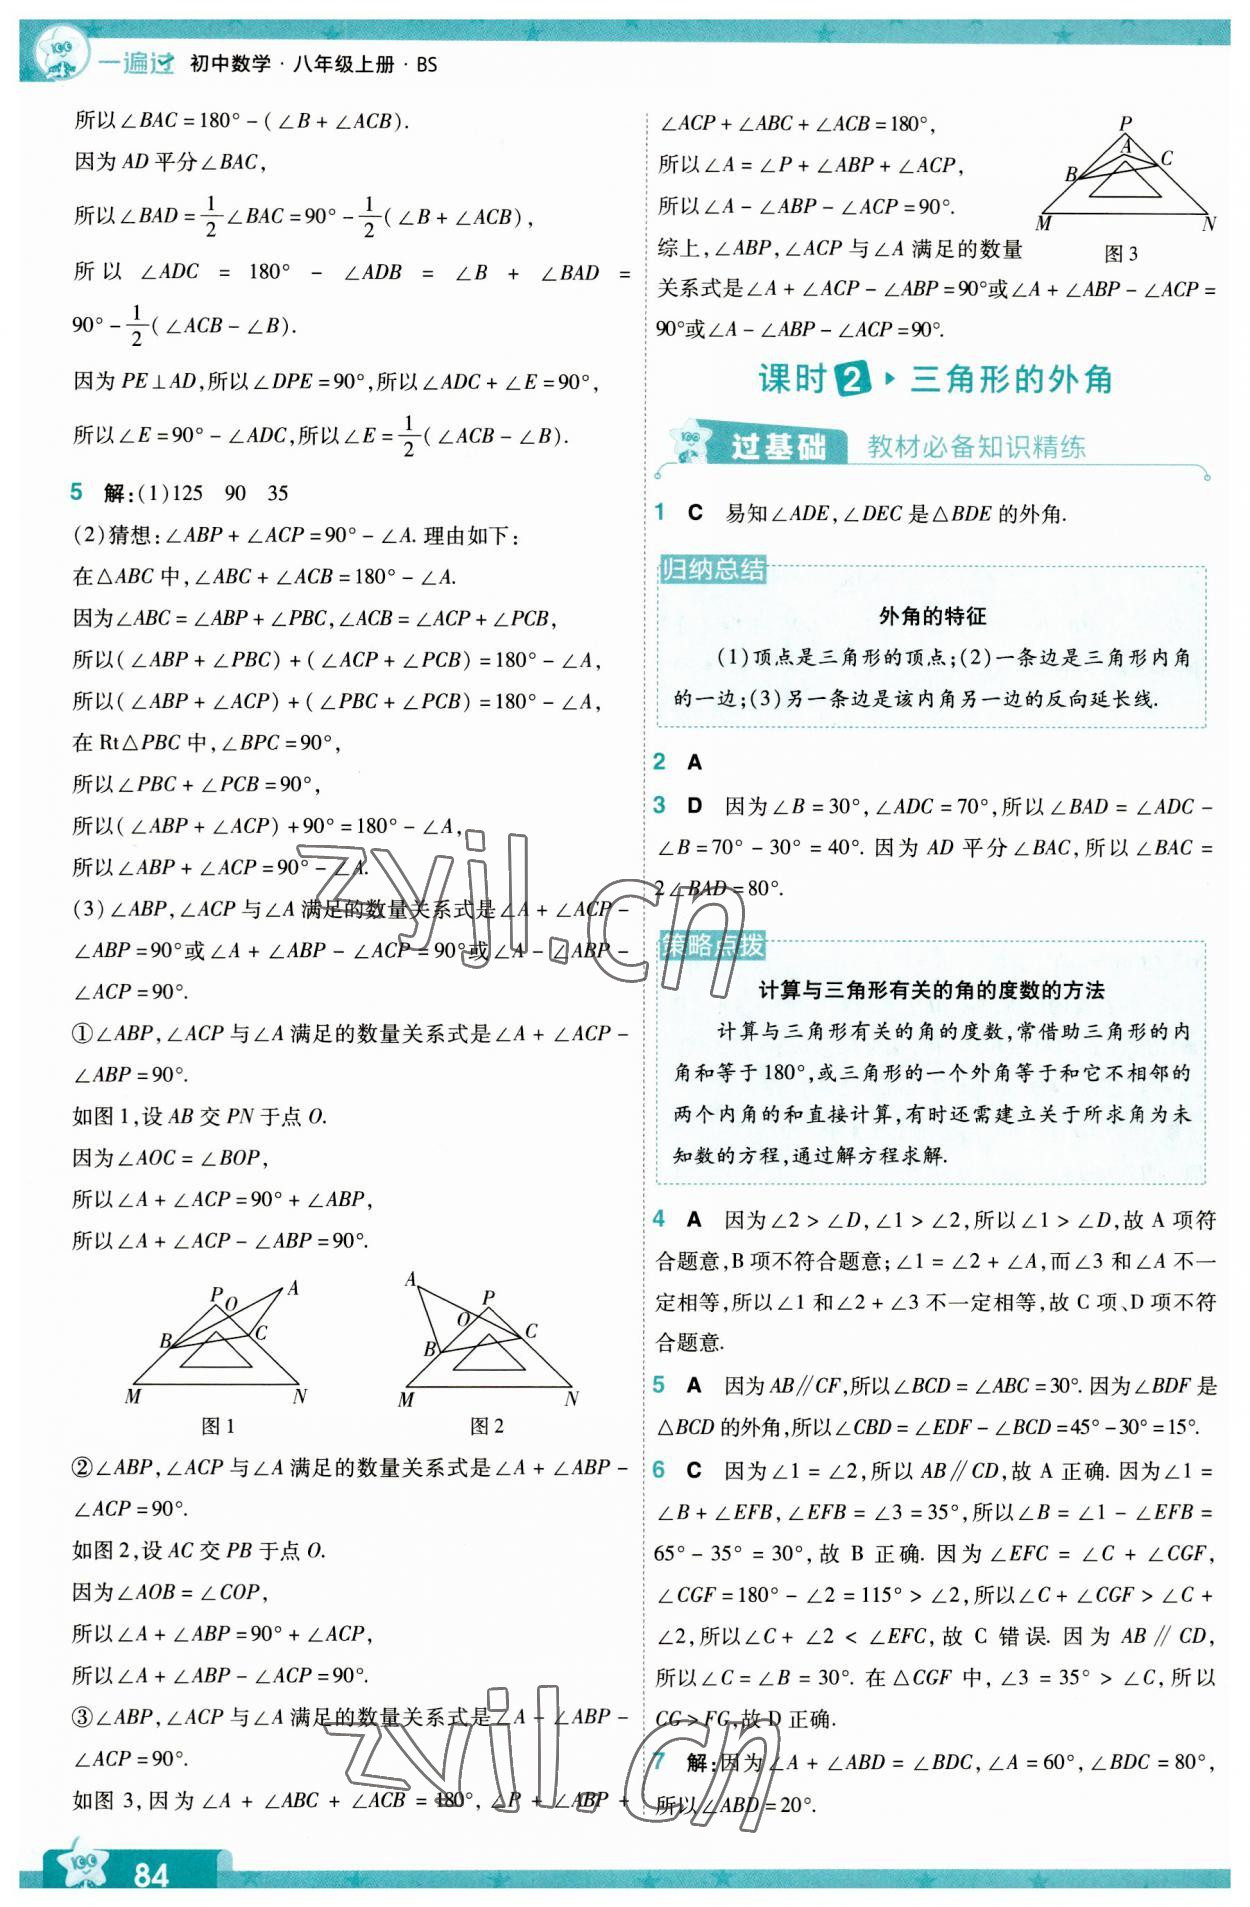 一遍过 初中数学·八年级上册·BS
所以∠BAC=180°-(∠B+∠ACB).
因为AD平分∠BAC,
所以∠BAD=1/2∠BAC=90°-1/2(∠B+∠ACB),
所以 ∠ADC = 180° - ∠ADB = ∠B + ∠BAD =
90°-1/2(∠ACB-∠B).
因为PE⊥AD,所以∠DPE=90°,所以∠ADC+∠E=90°,
所以∠E=90°-∠ADC,所以∠E=1/2(∠ACB-∠B).
5 解:(1)125 90 35
(2)猜想:∠ABP+∠ACP=90°-∠A.理由如下:
在△ABC中,∠ABC+∠ACB=180°-∠A.
因为∠ABC=∠ABP+∠PBC,∠ACB=∠ACP+∠PCB,
所以(∠ABP+∠PBC)+(∠ACP+∠PCB)=180°-∠A,
所以(∠ABP+∠ACP)+(∠PBC+∠PCB)=180°-∠A,
在Rt△PBC中,∠BPC=90°,
所以∠PBC+∠PCB=90°,
所以(∠ABP+∠ACP)+90°=180°-∠A,
所以∠ABP+∠ACP=90°-∠A.
(3)∠ABP,∠ACP与∠A满足的数量关系式是∠A+∠ACP-
∠ABP=90°或∠A+∠ABP-∠ACP=90°或∠A-∠ABP-
∠ACP=90°.
①∠ABP,∠ACP与∠A满足的数量关系式是∠A+∠ACP-
∠ABP=90°.
如图1,设AB交PN于点O.
因为∠AOC=∠BOP,
所以∠A+∠ACP=90°+∠ABP,
所以∠A+∠ACP-∠ABP=90°.
P O A B C M N
图1
A P O B C M N
图2
②∠ABP,∠ACP与∠A满足的数量关系式是∠A+∠ABP-
∠ACP=90°.
如图2,设AC交PB于点O.
因为∠AOB=∠COP,
所以∠A+∠ABP=90°+∠ACP,
所以∠A+∠ABP-∠ACP=90°.
③∠ABP,∠ACP与∠A满足的数量关系式是∠A-∠ABP-
∠ACP=90°.
如图3,因为∠A+∠ABC+∠ACB=180°,∠P+∠ABP+
∠ACP+∠ABC+∠ACB=180°,
所以∠A=∠P+∠ABP+∠ACP,
所以∠A-∠ABP-∠ACP=90°.
P A B C M N
图3
综上,∠ABP,∠ACP与∠A满足的数量
关系式是∠A+∠ACP-∠ABP=90°或∠A+∠ABP-∠ACP=
90°或∠A-∠ABP-∠ACP=90°.
课时2 三角形的外角
过基础 教材必备知识精练
1 C 易知∠ADE,∠DEC是△BDE的外角.
归纳总结
外角的特征
(1)顶点是三角形的顶点;(2)一条边是三角形内角
的一边;(3)另一条边是该内角另一边的反向延长线.
2 A
3 D 因为∠B=30°,∠ADC=70°,所以∠BAD=∠ADC-
∠B=70°-30°=40°.因为AD平分∠BAC,所以∠BAC=
2∠BAD=80°.
策略点拨
计算与三角形有关的角的度数的方法
计算与三角形有关的角的度数,常借助三角形的内
角和等于180°,或三角形的一个外角等于和它不相邻的
两个内角的和直接计算,有时还需建立关于所求角为未
知数的方程,通过解方程求解.
4 A 因为∠2>∠D,∠1>∠2,所以∠1>∠D,故A项符
合题意,B项不符合题意;∠1=∠2+∠A,而∠3和∠A不一
定相等,所以∠1和∠2+∠3不一定相等,故C项、D项不符
合题意.
5 A 因为AB∥CF,所以∠BCD=∠ABC=30°.因为∠BDF是
△BCD的外角,所以∠CBD=∠EDF-∠BCD=45°-30°=15°.
6 C 因为∠1=∠2,所以AB∥CD,故A正确.因为∠1=
∠B+∠EFB,∠EFB=∠3=35°,所以∠B=∠1-∠EFB=
65°-35°=30°,故B正确.因为∠EFC=∠C+∠CGF,
∠CGF=180°-∠2=115°>∠2,所以∠C+∠CGF>∠C+
∠2,所以∠C+∠2<∠EFC,故C错误.因为AB∥CD,
所以∠C=∠B=30°.在△CGF中,∠3=35°>∠C,所以
CG>FG,故D正确.
7 解:因为∠A+∠ABD=∠BDC,∠A=60°,∠BDC=80°,
所以∠ABD=20°.
zyjl.cn
zyjl.cn
84